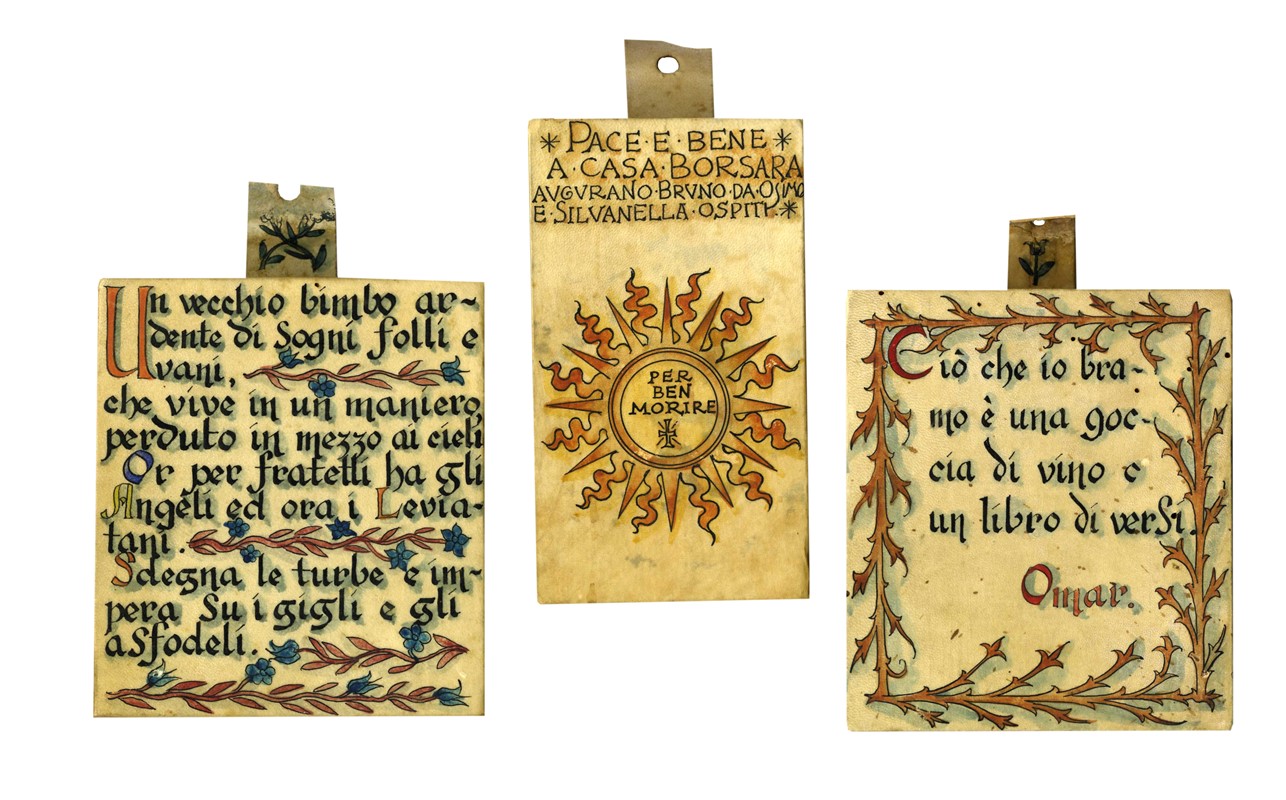 Un vecchio bimbo ar-
dente di Sogni folli e
vani,
che vive in un maniero,
perduto in mezzo ai cieli
Or per fratelli ha gli
Angeli ed ora i Levia-
tani.
Sdegna le turbe e im-
pera Su i gigli e gli
aSfodeli.
* PACE·E·BENE *
A·CASA·BORSARA
AVGVRANO·BRVNO·DA·OSIMO
E·SILVANELLA·OSPITI·*
PER
BEN
MORIRE
Ciò che io bra-
mo è una goc-
cia di vino e
un libro di verSi.
Omar.